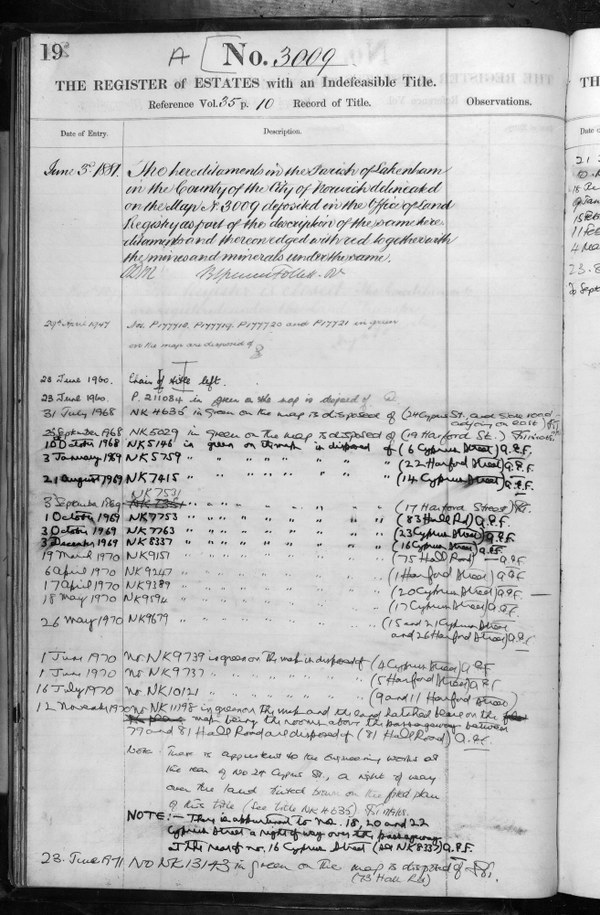 19
A [No. 3009
THE REGISTER of ESTATES with an Indefeasible Title.
Reference Vol. 35 p. 10 Record of Title.
Observations.
Date of Entry.
Description.
June 3d 1881. The hereditaments in the Parish of Lakenham
in the County of the City of Norwich delineated
on the Map A 3009 deposited in the Office of Land
Registry as part of the description of the same here
ditaments and thereon edged with red together with
the mines and minerals under the same.
29th April 1947 Nos. P177718, P177719, P177720 and P177721 in green
on the map are disposed of
22 June 1960. Chain of title left.
23 June 1960. P. 211084 in green on the map is disposed of
31 July 1968 NK 4635 in green on the map is disposed of (24 Cyprus St., and side road
adjoining on east)
25 September 1968 NK 5029 in green on the map is disposed of (19 Harford St.)
10 October 1968 NK 5146 in green on the map is disposed of (6 Cyprus Street) A.P.F.
3 January 1969 NK 5759 " " " " " " " (22 Harford Street) A.P.F.
21 August 1969 NK 7415 " " " " " " " (14 Cyprus Street) A.P.F.
NK 7531
3 September 1969 " " " " " " " (17 Harford Street)
1 October 1969 NK 7753 " " " " " " " (83 Hall Rd) A.P.F.
3 October 1969 NK 7763 " " " " " " " (23 Cyprus Street) A.P.F.
3 December 1969 NK 8337 " " " " " " " (16 Cyprus Street) A.P.F.
19 March 1970 NK 9157 " " " " " " " (75 Hall Road) A.P.F.
6 April 1970 NK 9247 " " " " " " " (1 Harford Street) A.P.F.
17 April 1970 NK 9389 " " " " " " " (20 Cyprus Street) A.P.F.
18 May 1970 NK 9594 " " " " " " " (17 Cyprus Street) A.P.F.
26 May 1970 NK 9679 " " " " " " " (15 and 21 Cyprus Street
and 26 Harford Street) A.P.F.
1 June 1970 No NK 9739 in green on the map is disposed of (4 Cyprus Street) A.P.F
1 June 1970 No NK 9737 " " " " " (5 Harford Street) A.P.F
16 July 1970 No NK 10121 " " " " " (9 and 11 Harford Street)
12 November 1970 No NK 11198 in green on the map and the land hatched blue on the
map being the rooms above the passageway between
79 and 81 Hall Road are disposed of (81 Hall Road) A.P.F.
Note: There is appurtenant to the Engineering works at
the rear of No 24 Cyprus St., a right of way
over the land tinted brown on the filed plan
of this title (See title NK 4635).
NOTE:- There is appurtenant to no. 18, 20 and 22
Cyprus Street a right of way over the passageway
at the rear of no. 16 Cyprus Street (see NK 8337) A.P.F.
23 June 1971 NO NK 13143 in green on the map is disposed of
(73 Hall Rd)